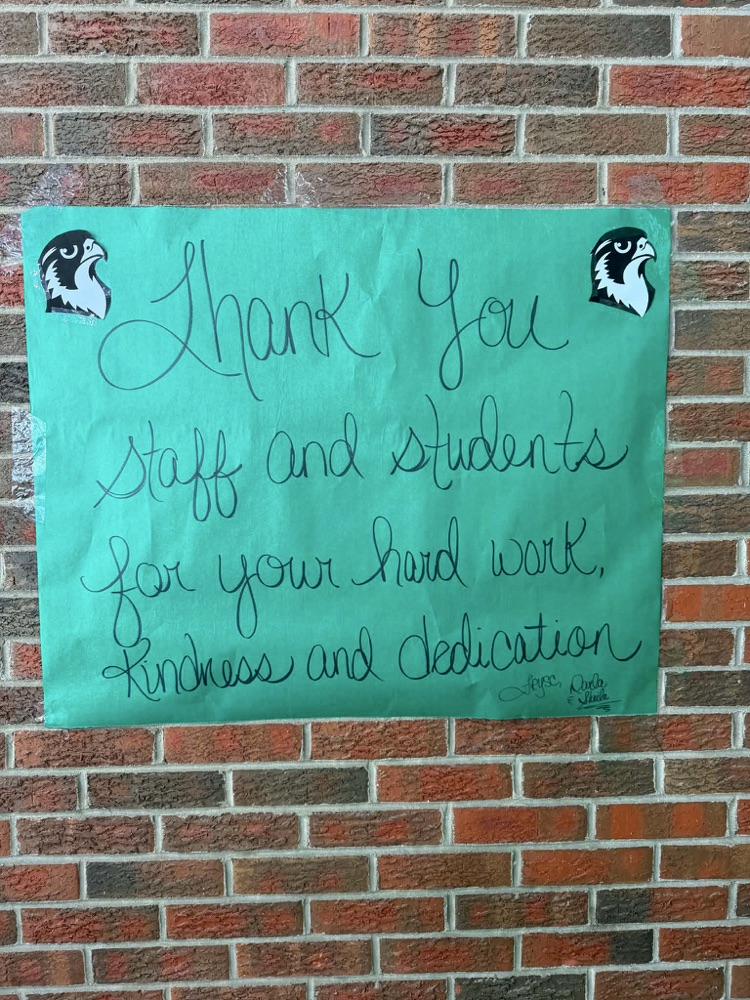 Thank You
staff and students
for your hard work,
kindness and dedication